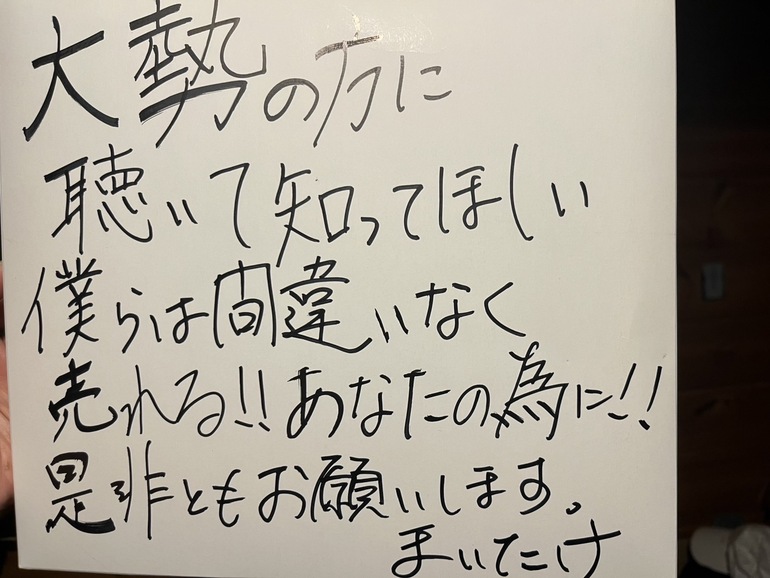 大勢の方に
聴いて知ってほしい
僕らは間違いなく
売れる!!あなたの為に!!
是非ともお願いします。
まいたけ